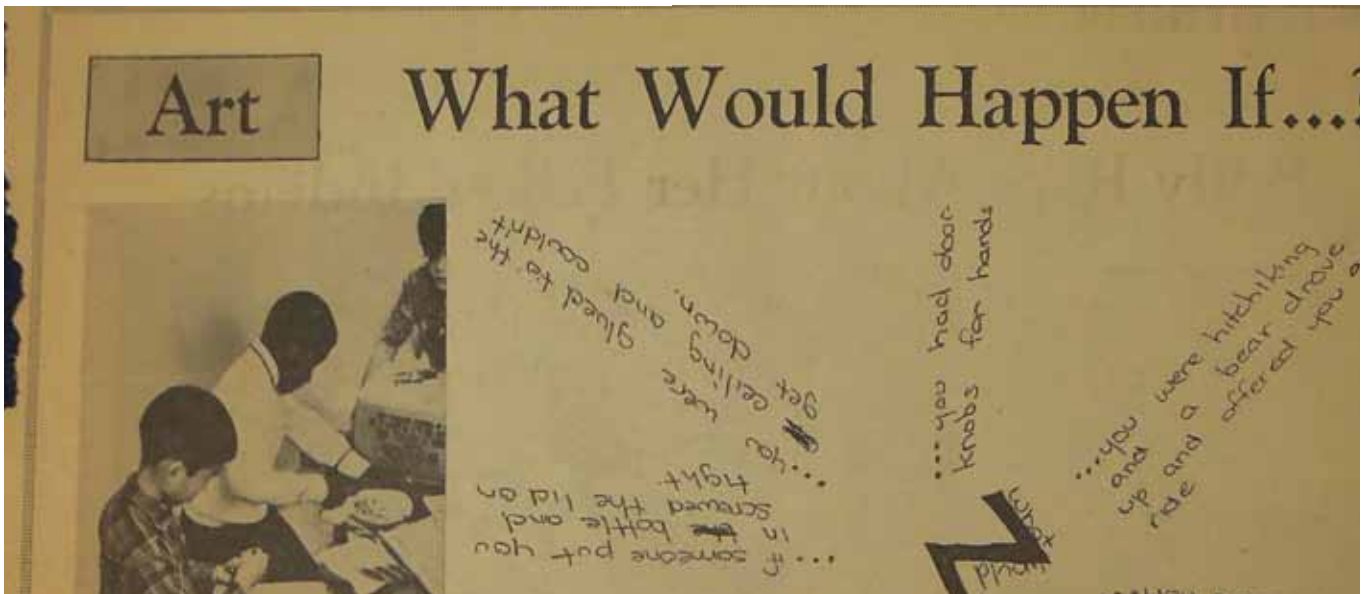 Art
What Would Happen If...?
...you were glued to the
ceiling and couldn't
get down.
...if someone put you
in bottle and
screwed the lid on
tight
...you had door-
knobs for hands
...you were hitchiking
and a bear drove
up and offered you a
ride